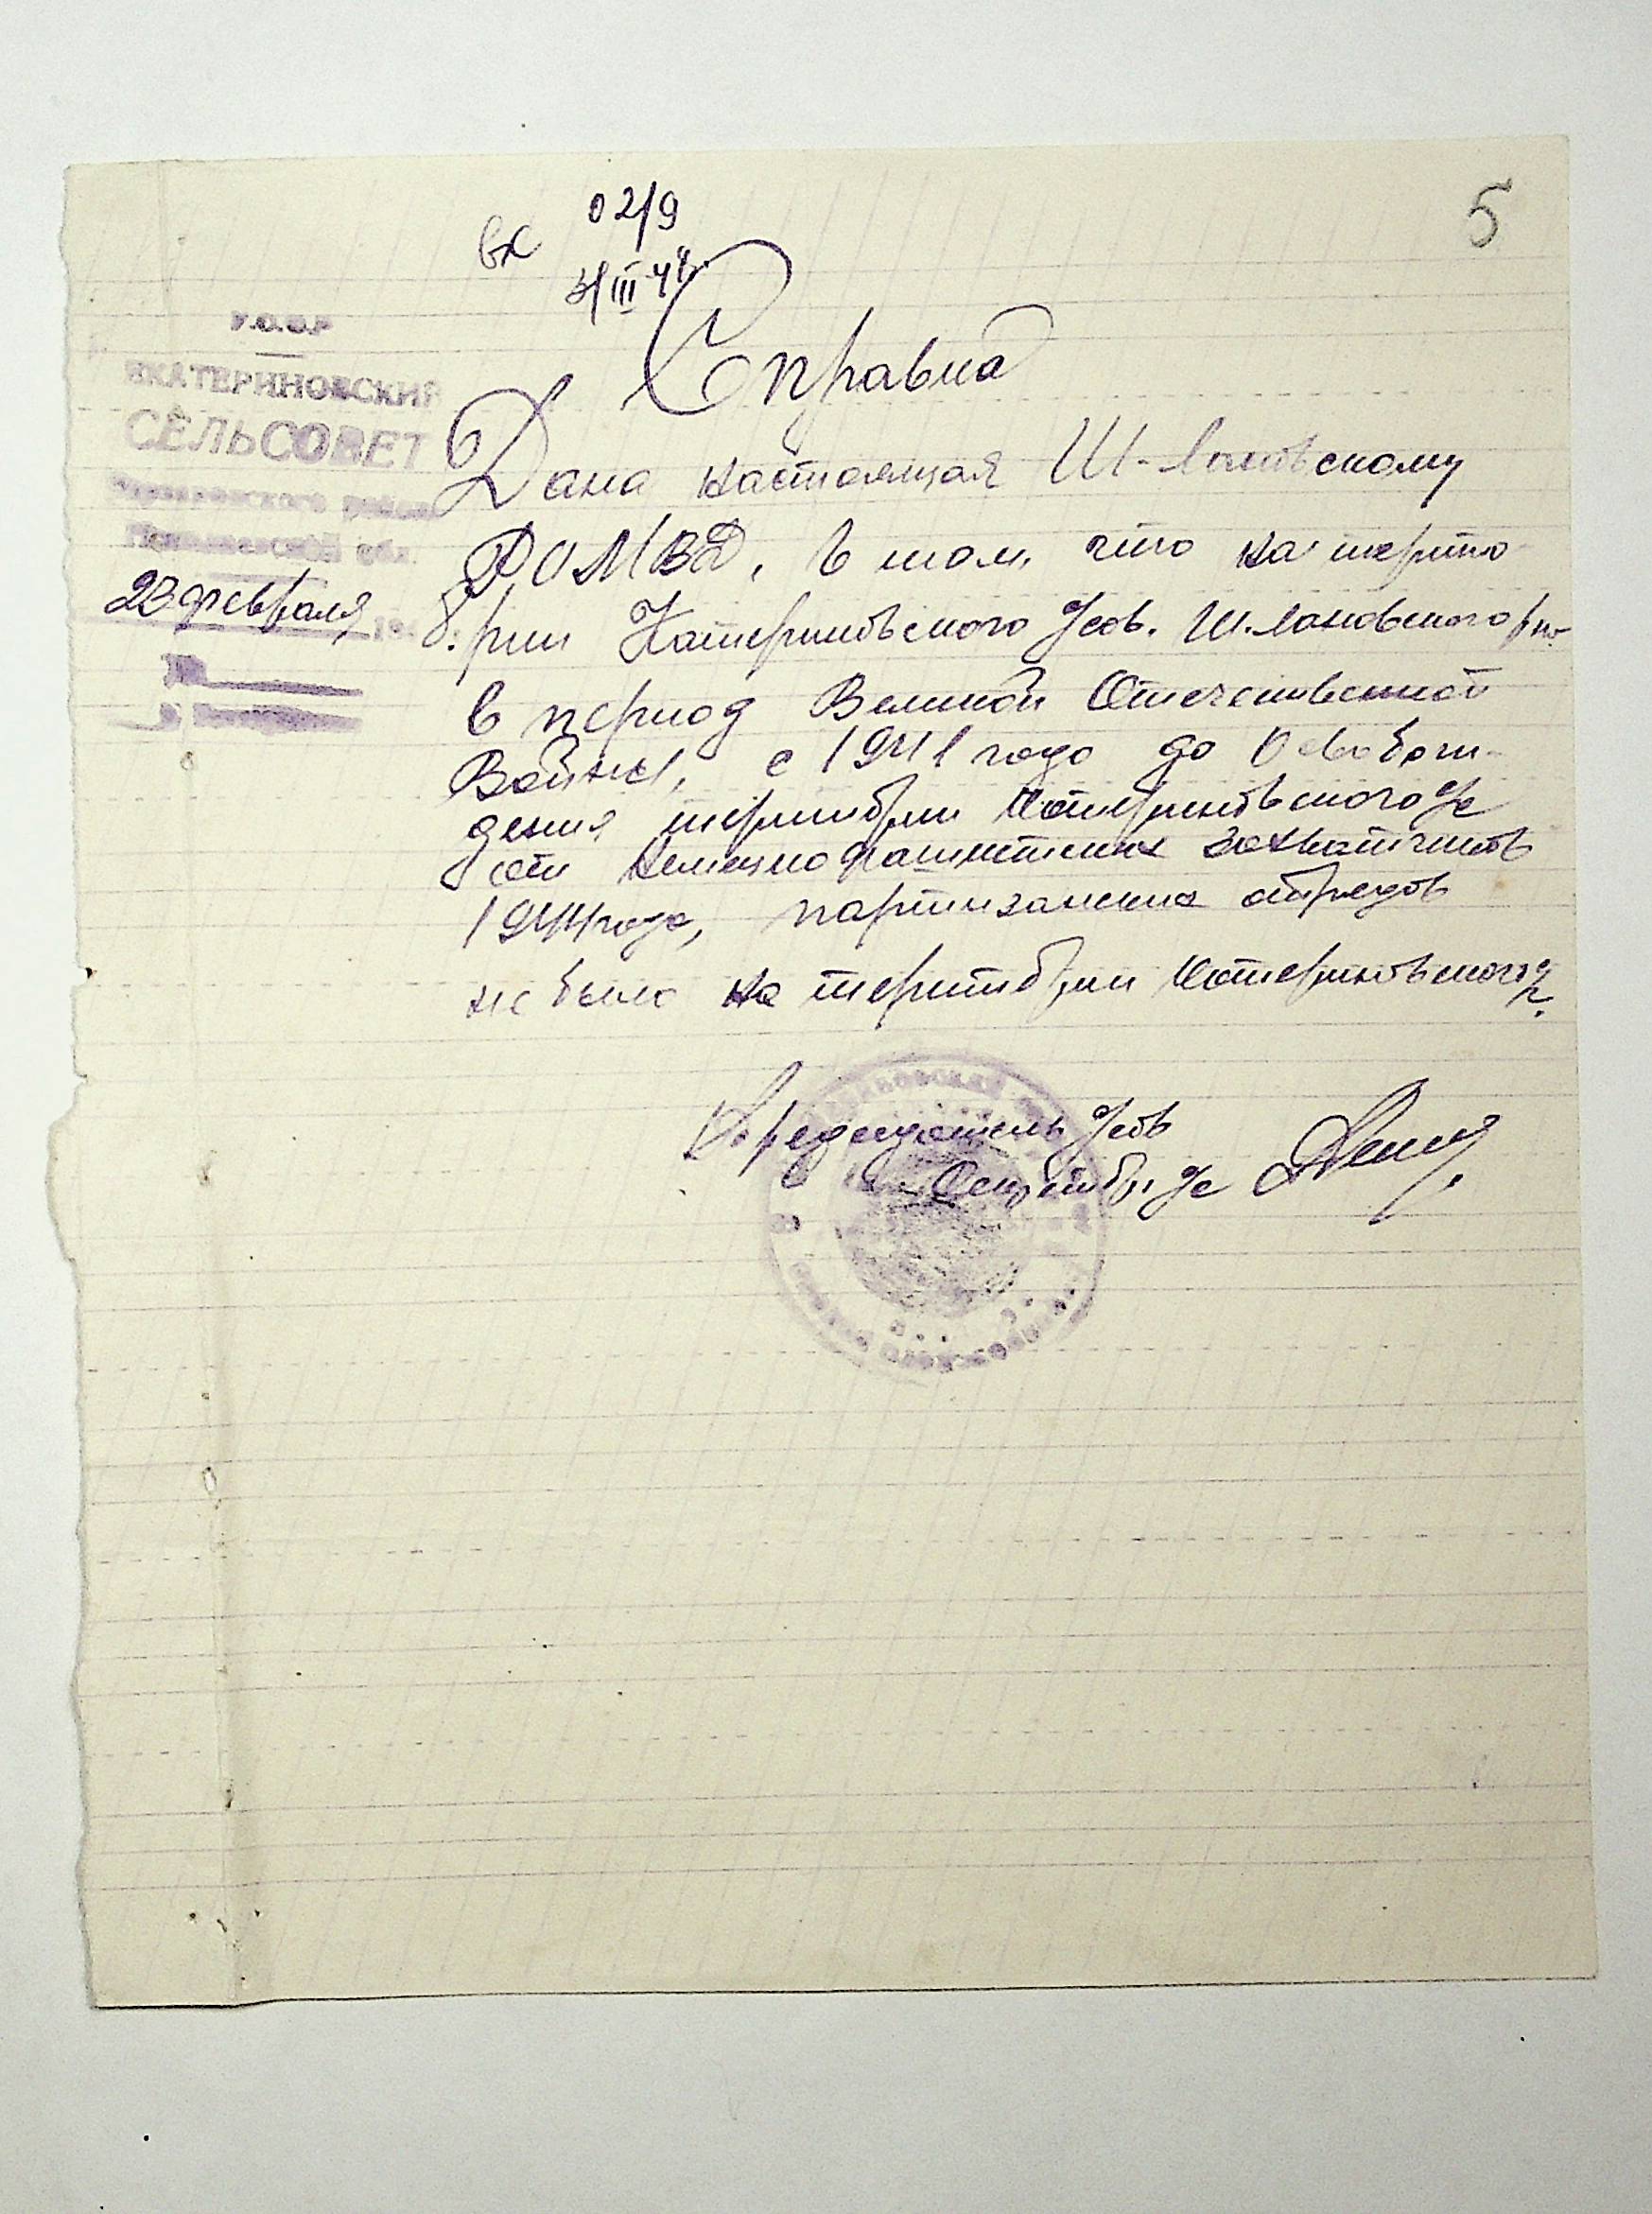 5
вх 02/9
3/III 48
У.С.С.Р
ЕКАТЕРИНОВСКИЙ
СЕЛЬСОВЕТ
района
обл.
23 февраля 194 8.
№
Справка
Дана настоящая Ш-Лановскому
РОМВД, в том, что на терито
рии Катериновского с/сов. Ш.Лановского р-на
в период Великой Отечественной
Войны, с 1941 года до Освобож-
дения територии Катериновского с/с
от немецко фашистских захватчиков
1944 года, партизанских отрядов
не было на територии Катериновского с/с.
Председатель с/сов
Секретарь с/с